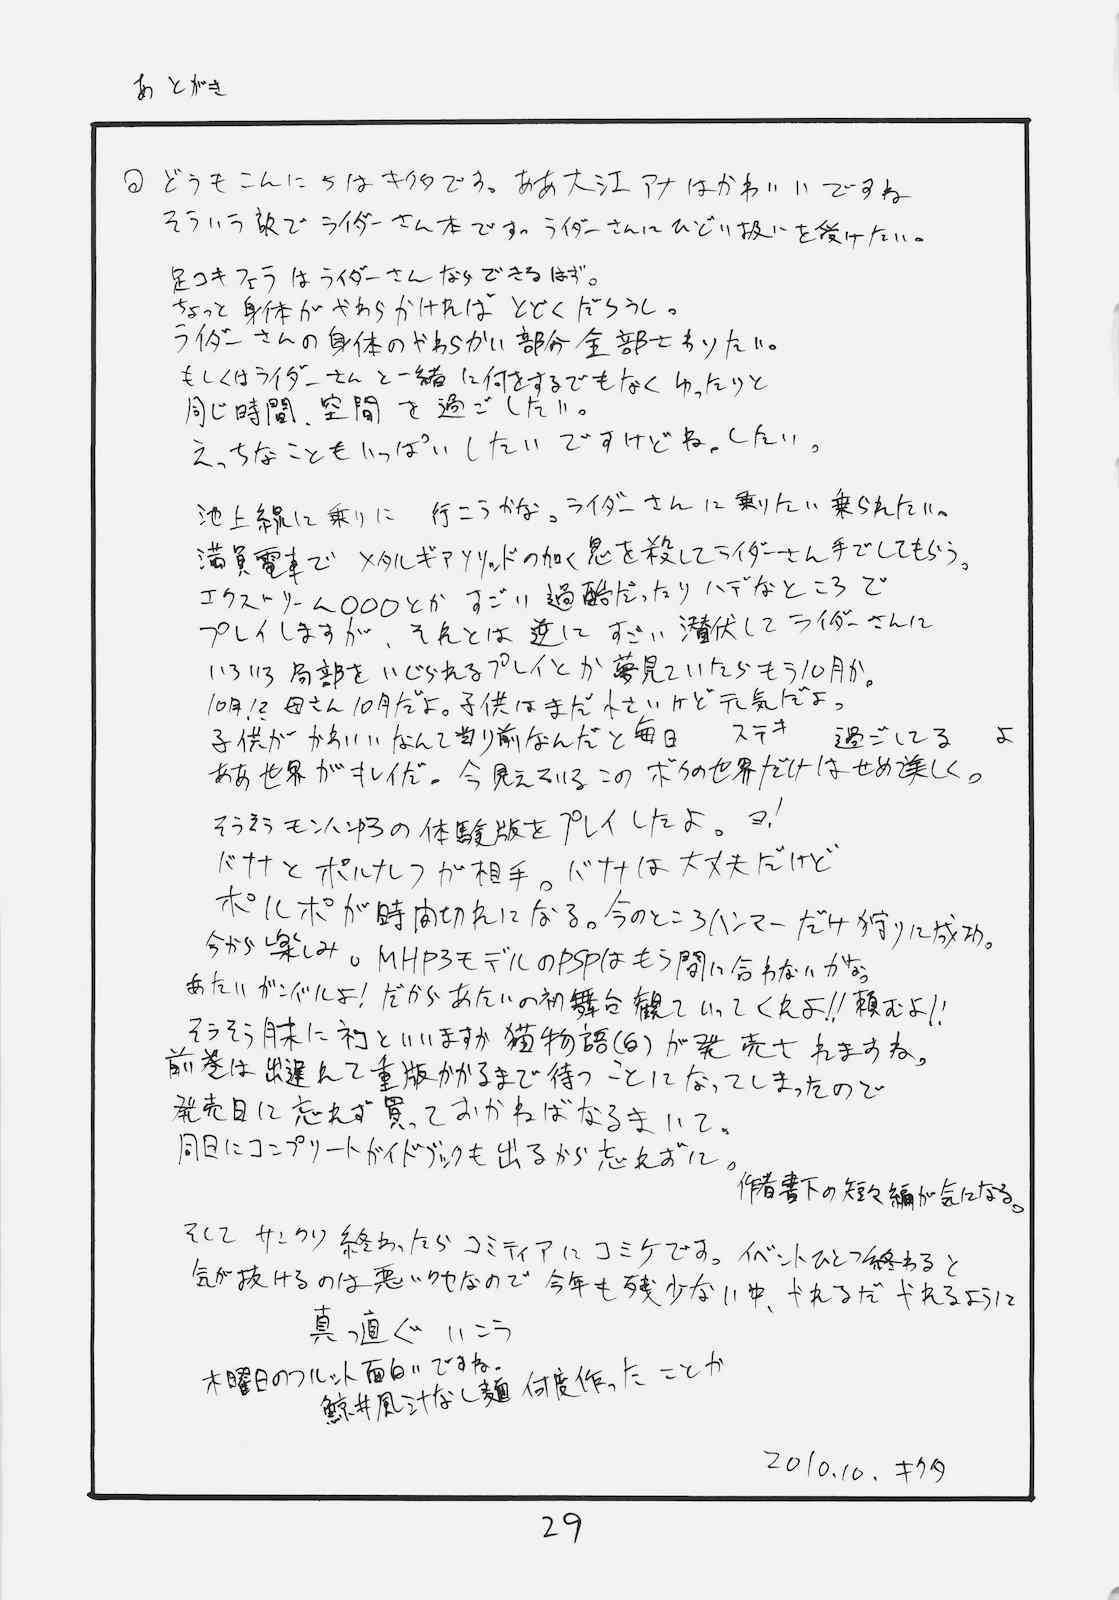 あとがき
どうもこんにちはキクタです。ああ大江アナはかわいいですね
そういう訳でライダーさん本です。ライダーさんにひどい扱いを受けたい。
足コキフェラはライダーさんならできるはず。
ちょっと身体がやわらかければとどくだろうし。
ライダーさんの身体のやわらかい部分全部さわりたい。
もしくはライダーさんと一緒に何をするでもなくゆったりと
同じ時間、空間を過ごしたい。
えっちなこともいっぱいしたいですけどね。したい。
池上線に乗りに 行こうかな。ライダーさんに乗りたい乗られたい。
満員電車でメタルギアソリッドの如く息を殺してライダーさん手でしてもらう。
エクストリーム〇〇〇とかすごい過酷だったりハデなところで
プレイしますが、それとは逆にすごい潜伏してライダーさんに
いろいろ局部をいじられるプレイとか夢見ていたらもう10月か。
10月!? 母さん10月だよ。子供はまだ小さいけど元気だよ。
子供がかわいいなんて当り前なんだと毎日 ステキ 過ごしてる よ
ああ世界がキレイだ。今見えているこのボクの世界だけはせめ美しく。
そうそうモンハンの体験版をプレイしたよ。ヨ!
バナナとポルナレフが相手。バナナは大丈夫だけど
ポルポが時間切れになる。今のところハンマーだけ狩りに成功。
今から楽しみ。MHP3モデルのPSPはもう間に合わないかな。
あたいガンバルよ!だからあたいの初舞台観ていってくれよ!!頼むよ!!
そうそう月末に初といいますか猫物語(白)が発売されますね。
前巻は出遅れて重版かかるまで待つことになってしまったので
発売日に忘れず買っておかねばなるまいて。
同日にコンプリートガイドブックも出るから忘れずに。
作者書下の短々編が気になる。
そしてサンクリ終わったらコミティアにコミケです。イベントひとつ終わると
気が抜けるのは悪いクセなので今年も残少ない中、やれるだけやれるように
真っ直ぐいこう
木曜日のフルット面白いですね。
鯨井風汁なし麺何度作ったことか
2010.10. キクタ
29